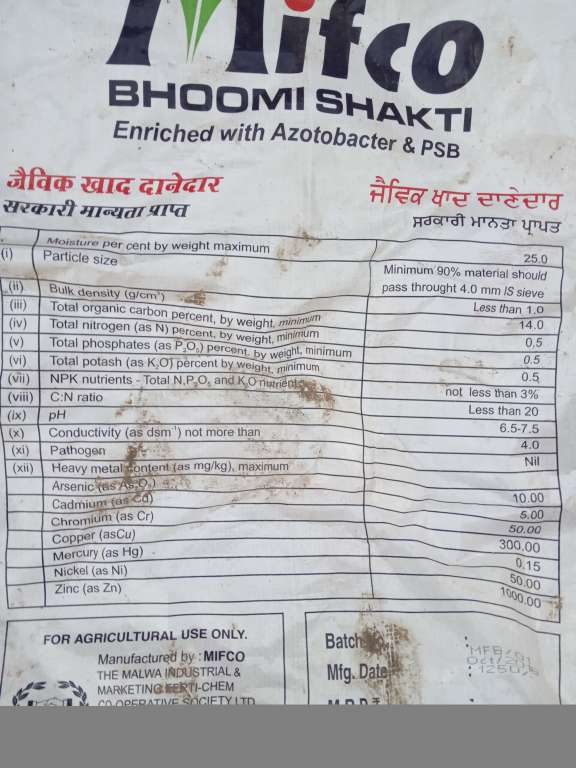 Mifco
BHOOMI SHAKTI
Enriched with Azotobacter & PSB
जैविक खाद दानेदार
सरकारी मान्यता प्राप्त
ਜੈਵਿਕ ਖਾਦ ਦਾਣੇਦਾਰ
ਸਰਕਾਰੀ ਮਾਨਤਾ ਪ੍ਰਾਪਤ
Moisture per cent by weight maximum 25.0
(i) Particle size Minimum 90% material should
pass throught 4.0 mm IS sieve
(ii) Bulk density (g/cm³) Less than 1.0
(iii) Total organic carbon percent, by weight, minimum 14.0
(iv) Total nitrogen (as N) percent, by weight, minimum 0.5
(v) Total phosphates (as P₂O₅) percent, by weight, minimum 0.5
(vi) Total potash (as K₂O) percent by weight, minimum 0.5
(vii) NPK nutrients - Total N,P₂O₅ and K₂O nutrients not less than 3%
(viii) C:N ratio Less than 20
(ix) pH 6.5-7.5
(x) Conductivity (as dsm⁻¹) not more than 4.0
(xi) Pathogen Nil
(xii) Heavy metal content (as mg/kg), maximum
Arsenic (as As₂O₃) 10.00
Cadmium (as Cd) 5.00
Chromium (as Cr) 50.00
Copper (asCu) 300.00
Mercury (as Hg) 0.15
Nickel (as Ni) 50.00
Zinc (as Zn) 1000.00
FOR AGRICULTURAL USE ONLY.
Manufactured by : MIFCO
THE MALWA INDUSTRIAL &
MARKETING FERTI-CHEM
CO-OPERATIVE SOCIETY LTD.
Batch
Mfg. Date